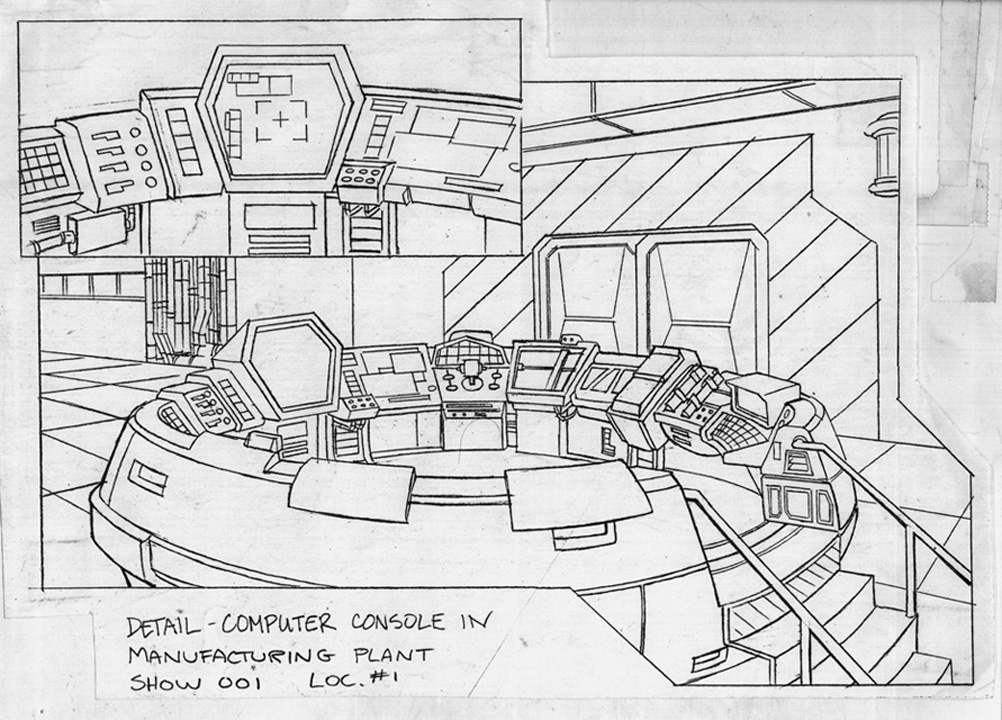 DETAIL - COMPUTER CONSOLE IN
MANUFACTURING PLANT
SHOW 001 LOC. #1